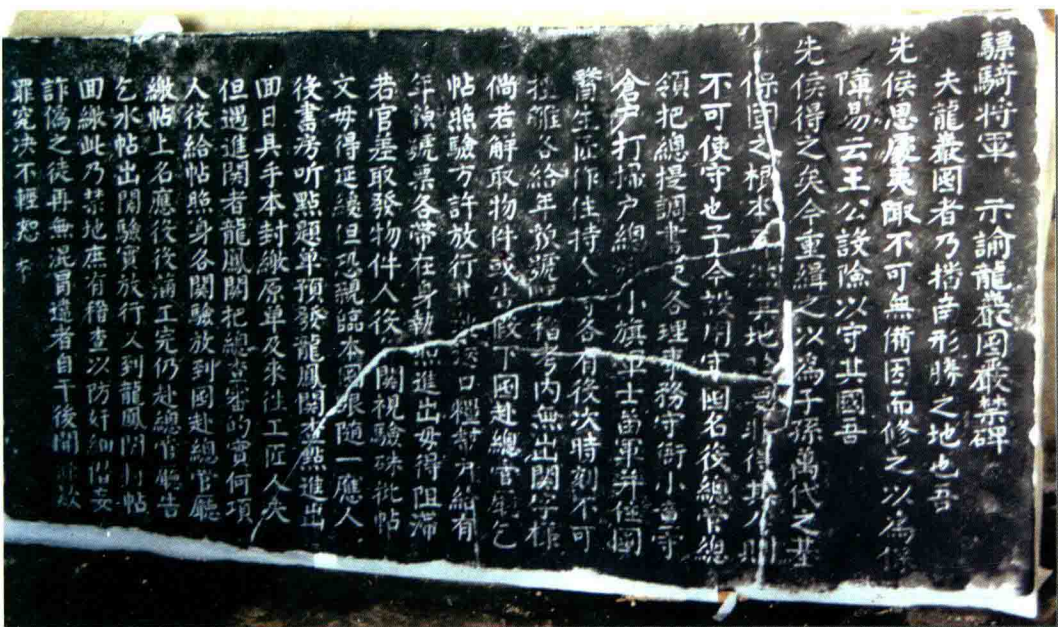 驃騎將軍 示諭龍巖囤嚴禁碑
夫龍巖囤者乃播南形勝之地也吾
先侯思慮夷陬不可無備因而修之以為保
障易云王公設險以守其國吾
先侯得之矣今重緝之以為子孫萬代之基
保固之根本 此土地 非得其人則
不可使守也予今設用守囤名役總管總
領把總提調書吏各理事務守衙小童守
倉戶打掃戶總 小旗軍士苗軍并住囤
醫生匠作住持人等各有役次時刻不可
擅離各給年貌號 稽考內無出關字樣
倘若解取物件或告假下囤赴總官廳乞
帖照驗方許放行其 口糧部戶給有
年貌號票各帶在身執照進出毋得阻滯
若官差取發物件人役 關視驗硃批帖
文毋得延緩但恐親臨本囤跟隨一應人
役書房听點題單預發龍鳳關查點進出
回日具手本封繳原单及來往工匠人矣
但遇進關者龍鳳關把總查審的實何項
人後給帖照身各關驗放到囤赴總官廳
繳帖上名應役役滿工完仍赴總官廳告
乞水帖出關驗實放行以到龍鳳關將帖
面繳此乃禁地庶有稽查以防奸細倘妄
詐偽之徒再無混冒違者自干後開 故
罪究決不輕恕 示